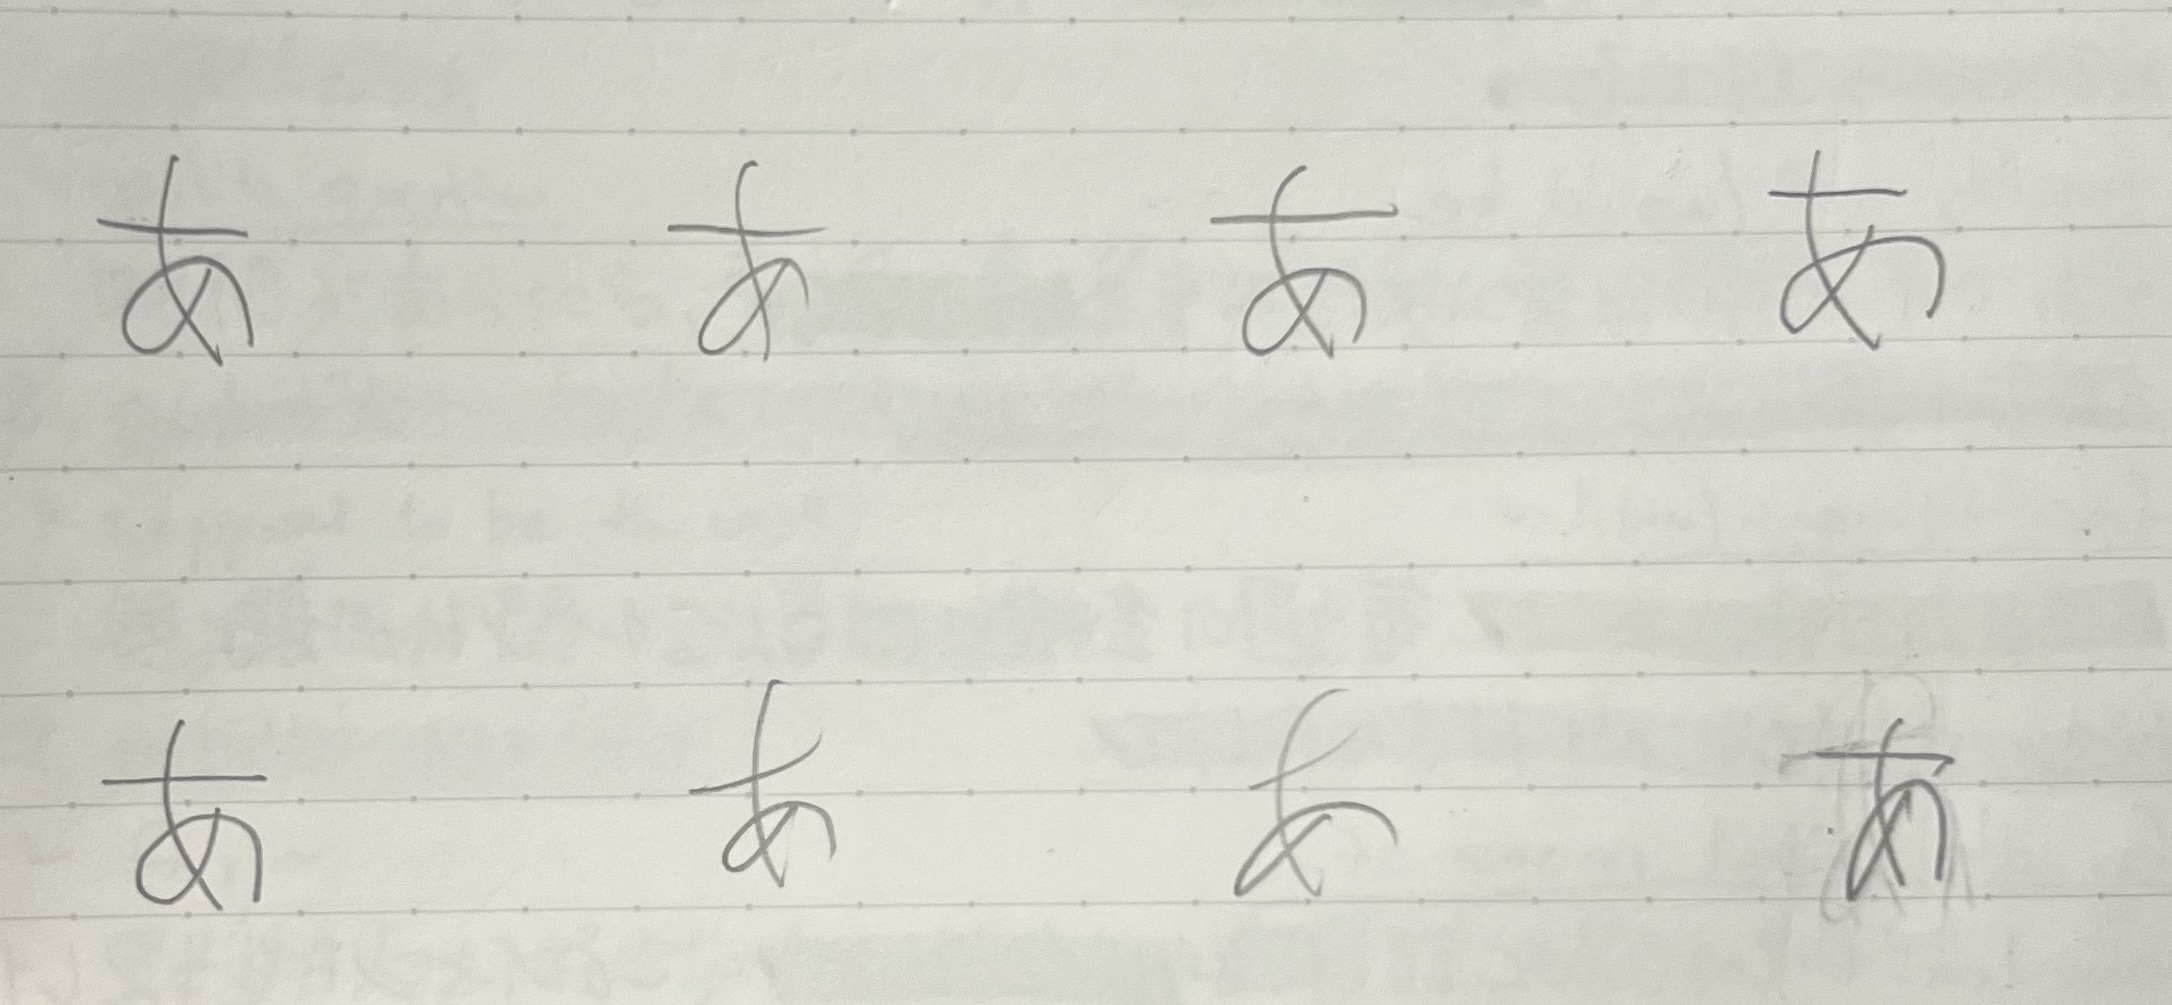 あ あ あ あ
あ あ あ あ